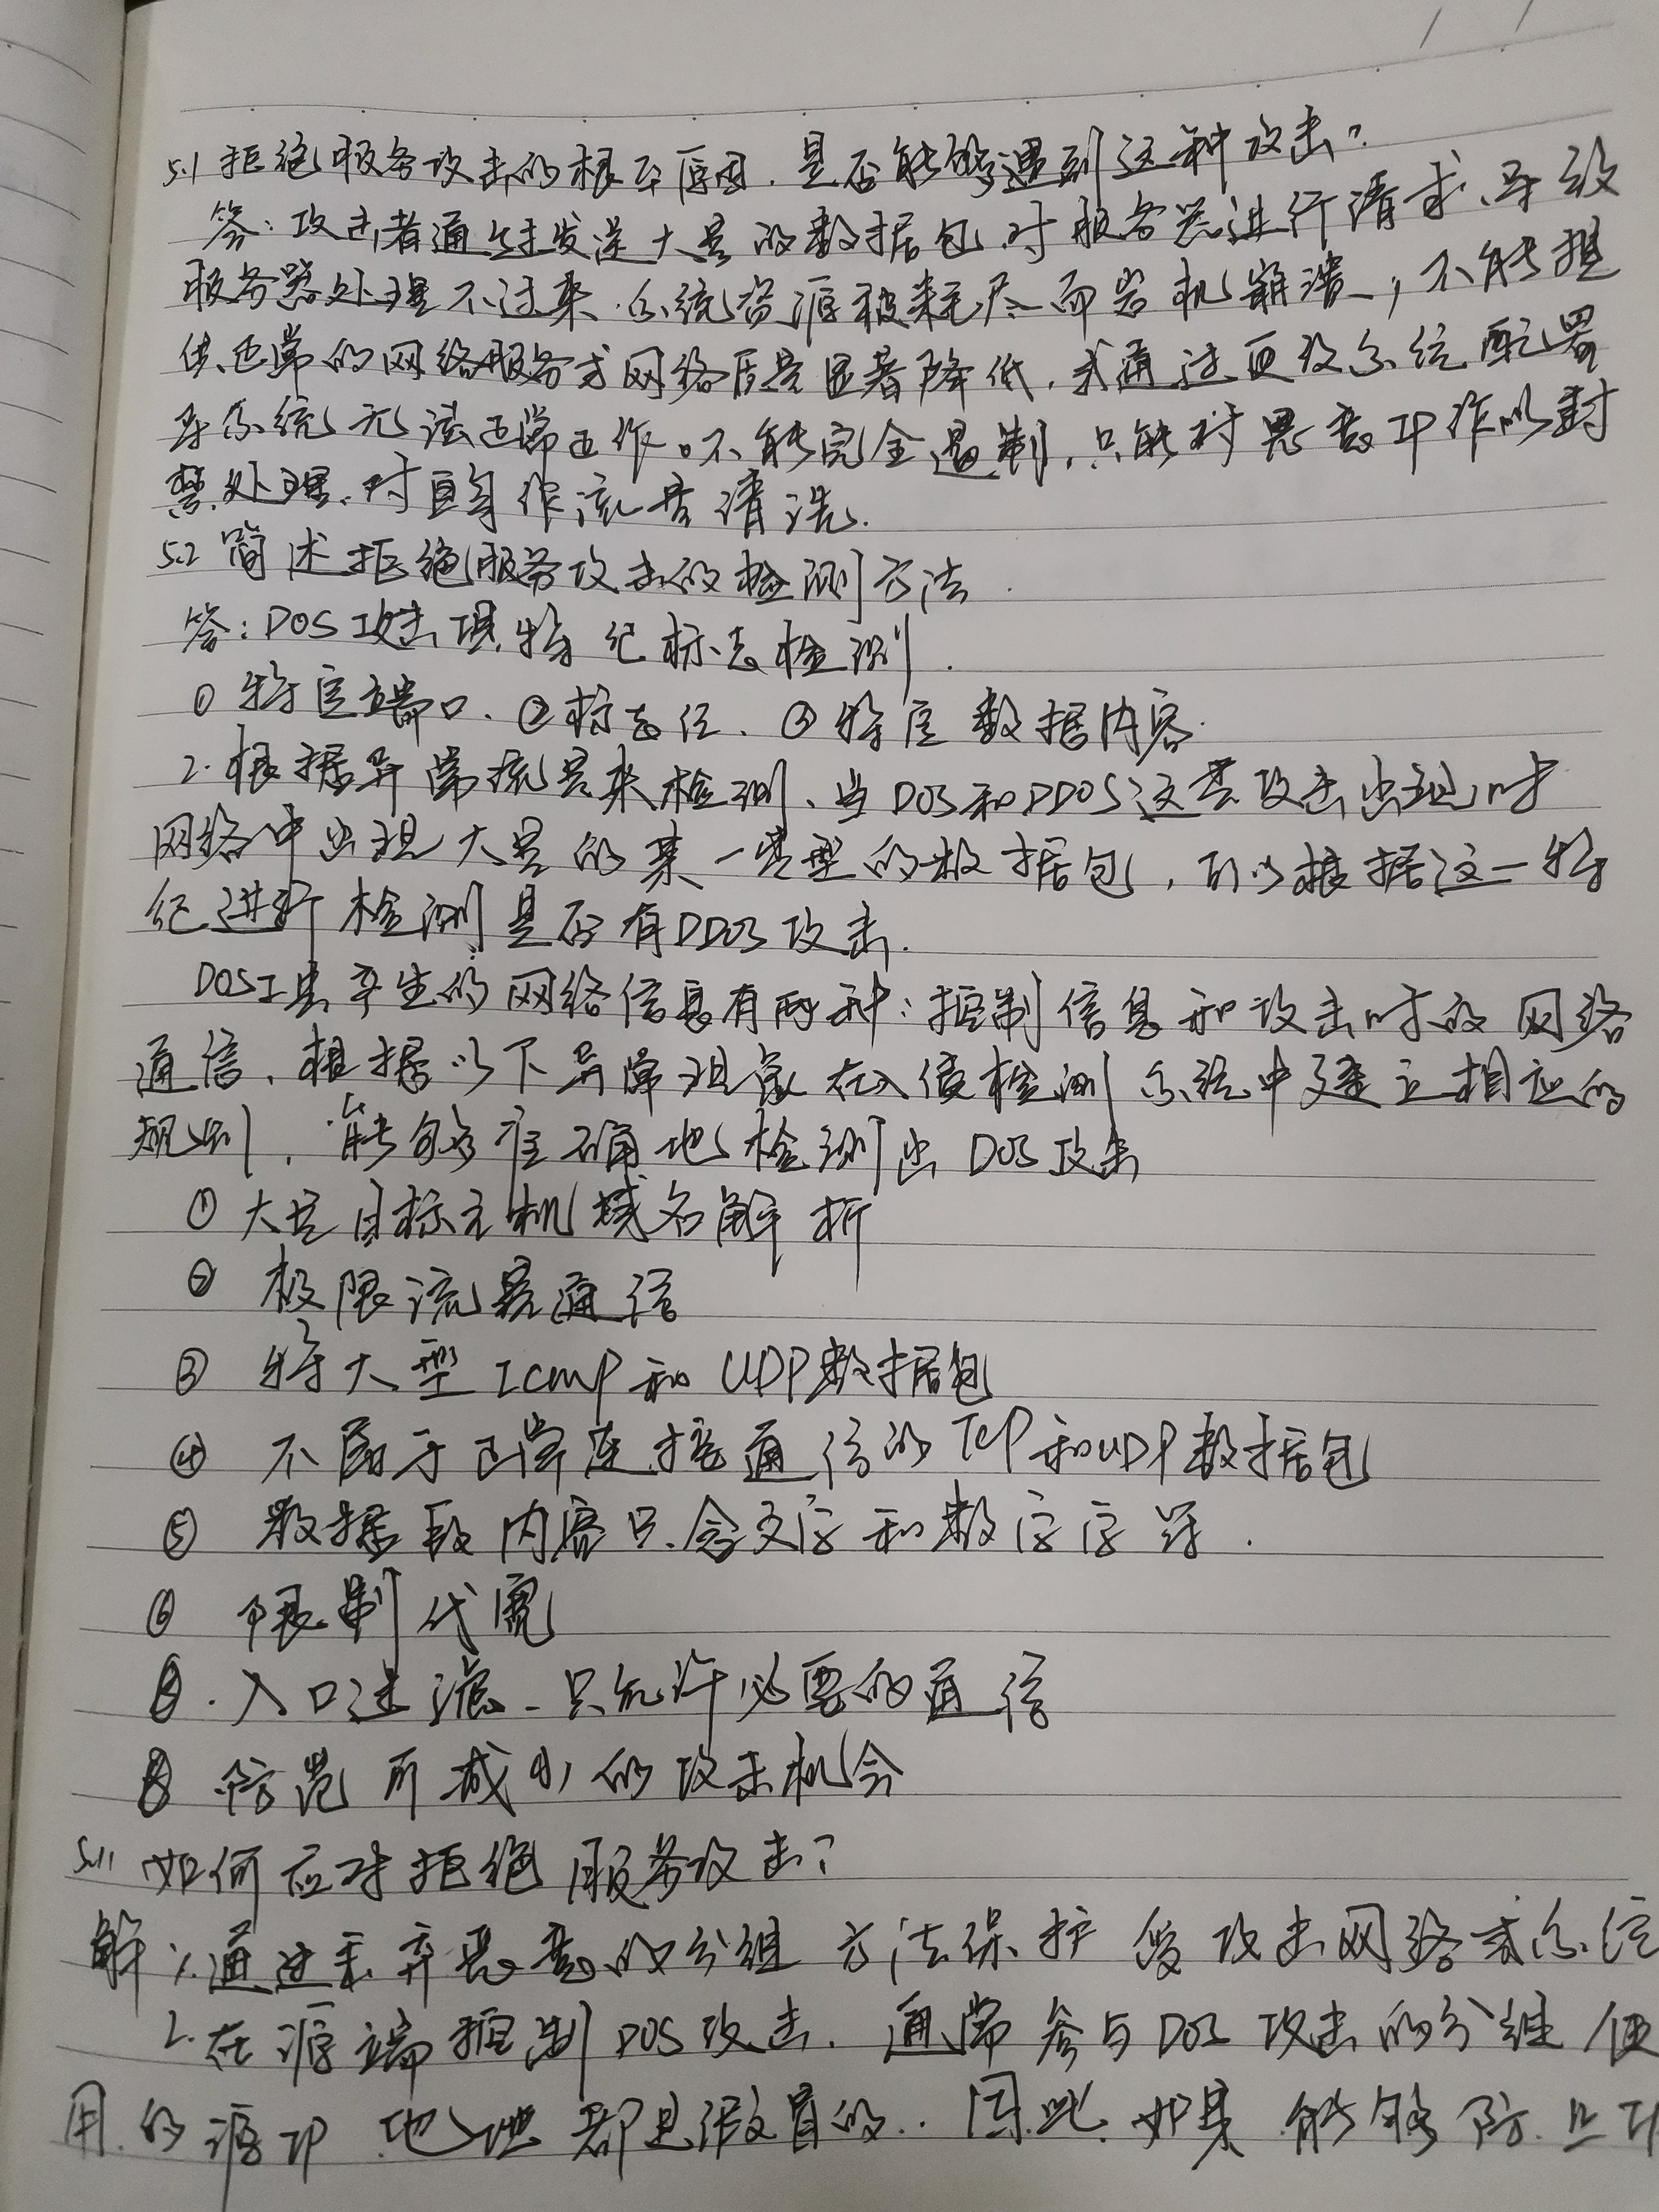 5.1 拒绝服务攻击的根本原因.是否能够遇到这种攻击?
答:攻击者通过发送大量的数据包,对服务器进行请求,导致
服务器处理不过来.系统资源被耗尽而宕机崩溃,不能提
供正常的网络服务或网络质量显著降低,或通过更改系统配置
导系统无法正常工作。不能完全遏制,只能对恶意IP作以封
禁处理.对自身作流量清洗.
5.2 简述拒绝服务攻击的检测方法.
答:DOS攻击现特纪标志检测.
①特定端口、②标志位、③特定数据内容.
2.根据异常流量来检测、当DOS和DDOS这类攻击出现时
网络中出现大量的某一类型的数据包,可以根据这一特
纪进行检测是否有DDOS攻击.
DOS工具产生的网络信息有两种:控制信息和攻击时的网络
通信.根据以下异常现象在入侵检测系统中建立相应的
规则,能够准确地检测出DOS攻击
①大量目标主机域名解析
② 极限流量通信
③ 特大型ICMP和UDP数据包
④ 不属于正常连接通信的TCP和UDP数据包
⑤ 数据段内容只含文字和数字字符.
⑥ 限制代宽
⑦.入口过滤-只允许必要的通信
⑧ 防范所减小的攻击机会
5.11 如何应对拒绝服务攻击?
解:1.通过丢弃恶意的分组方法保护受攻击网络或系统
2.在源端控制DOS攻击.通常参与DOS攻击的分组使
用的源IP地址都是假冒的.因此.如果能够防止IP